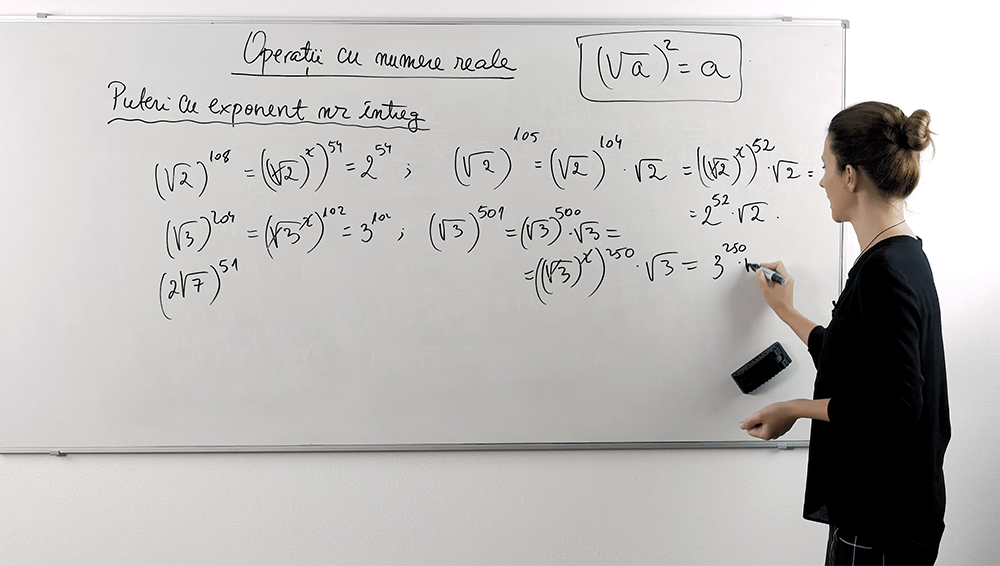 Operații cu numere reale
(√a)² = a
Puteri cu exponent nr întreg
(√2)¹⁰⁸ = ((√2)²)⁵⁴ = 2⁵⁴ ; (√2)¹⁰⁵ = (√2)¹⁰⁴ · √2 = ((√2)²)⁵² · √2 =
= 2⁵² · √2 .
(√3)²⁰⁴ = (√3²)¹⁰² = 3¹⁰² ; (√3)⁵⁰¹ = (√3)⁵⁰⁰ · √3 =
= ((√3)²)²⁵⁰ · √3 = 3²⁵⁰ ·
(2√7)⁵¹